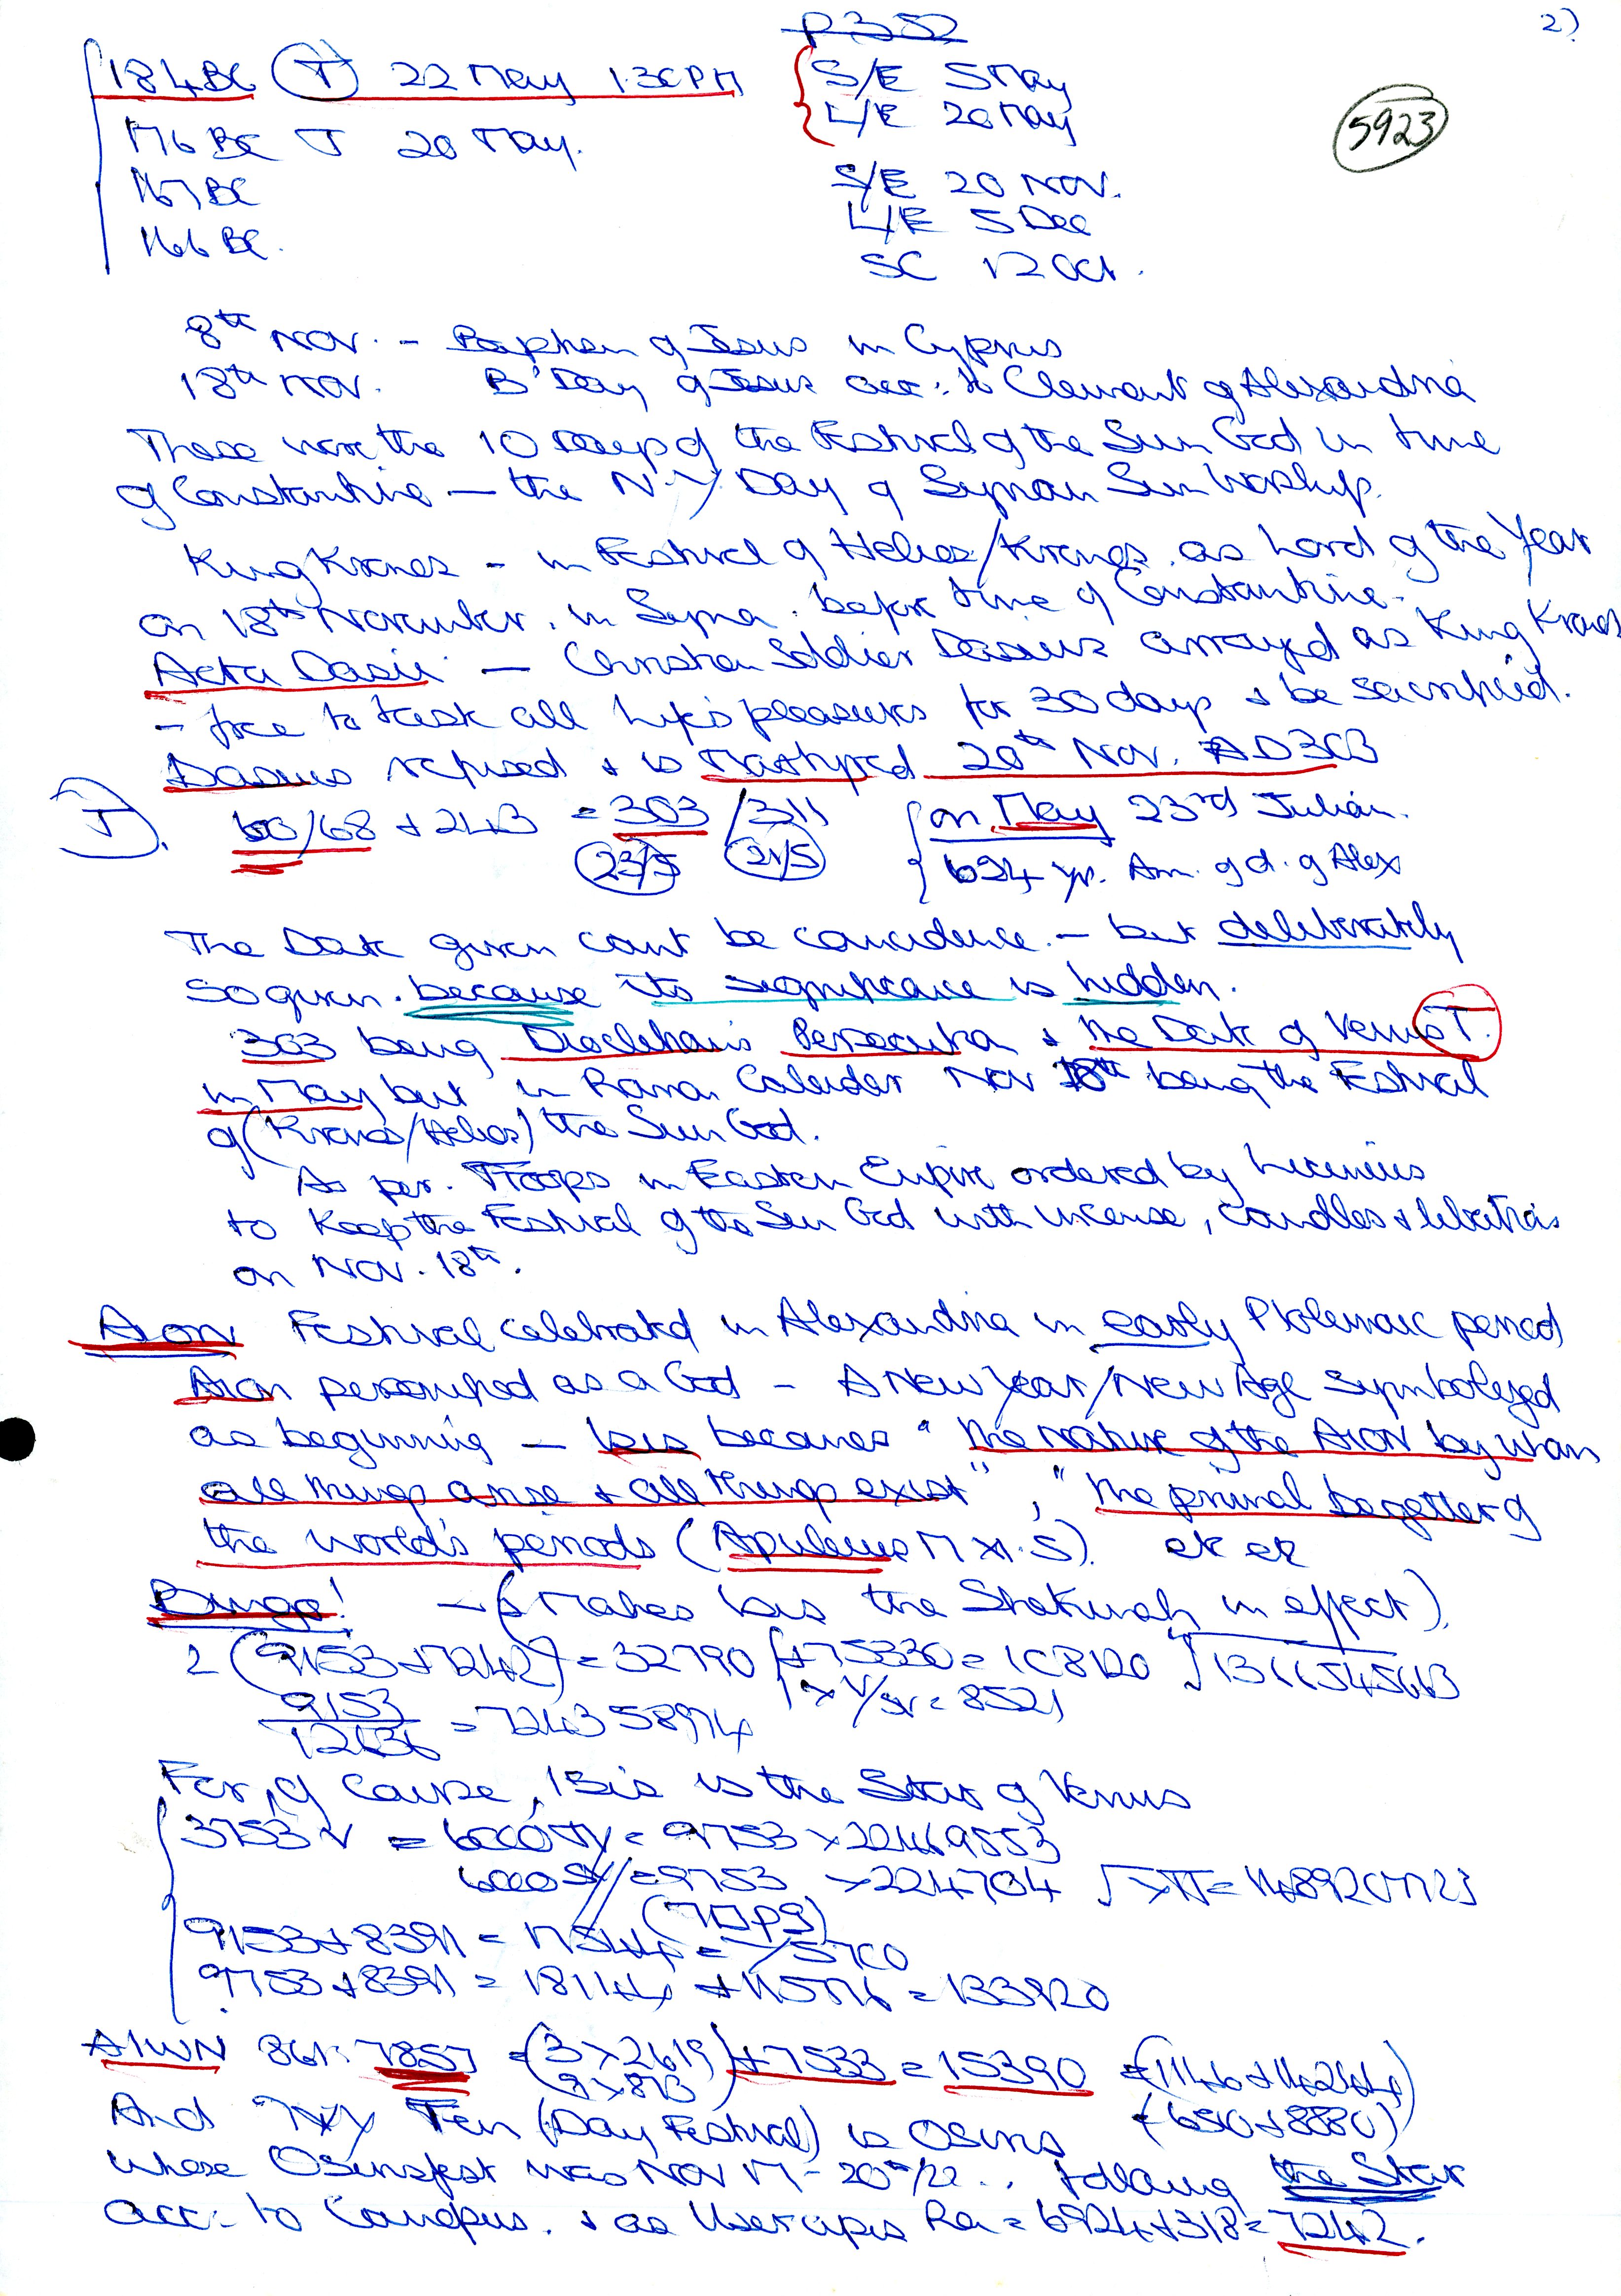 P352
2)
184BC (T) 22 May 1.30PM { S/E 5 May
L/E 20 May
5923
176 BC T 20 May.
167 BC S/E 20 NOV.
L/E 5 Dec
166 BC. SC 12 Oct.
8th NOV. - Baptism of Jesus in Cyprus
18th NOV. B'Day of Jesus acc: to Clement of Alexandria
These were the 10 Days of the Festival of the Sun God in time
of Constantine — the N.Y. Day of Syrian Sun Worship.
King Kronos - in Festival of Helios/Kronos as Lord of the Year
on 18th November, in Syria. before time of Constantine.
Acta Dasii — Christian Soldier Dasius arrayed as King Kronos
- free to task all life's pleasures for 30 days & be sacrificed.
Dasius refused & is Martyred 20th Nov. AD303
(T). 60/68 + 243 = 303 / 311 { on May 23rd Julian.
(23/5) (21/5) { 624 yr. Ann. of d. of Alex
The Date given can't be coincidence. - but deliberately
so given. because its significance is hidden.
303 being Diocletian's Persecution & the Date of Venus T.
in May but in Roman Calendar Nov 18th being the Festival
of (Kronos/Helios) the Sun God.
As per. Troops in Eastern Empire ordered by Licinius
to Keep the Festival of the Sun God with incense, candles & libations
on NOV. 18th.
Aion Festival celebrated in Alexandria in early Ptolemaic period
Aion personified as a God - A New Year/New Age symbolised
as beginning — Isis becomes "the nature of the Aion by whom
all things arise & all things exist", "the primal begetter of
the world's periods (Apuleius M XI.5). etc etc
Bingo! — (Makes Isis the Shekinah in effect).
2 (9153+7242) = 32790 + 75330 = 108120 √1366545663
x V/sr = 8521
9153
12636 = 724358974
For, of course, Isis is the Star of Venus
3753 V = 6000 TY = 9753 x 22469553
6000 SY = 9753 x 224704 √xπ = 1489207723
9153+8391 = 17544 = /5700
9753+8391 = 18144 + 115776 = 133920
AIWN 861. 7857 = (3x2619) + 7533 = 15390 = (1146+14244)
(9x873) (6510+8880)
And Ten (Day Festival) is Osiris
whose Osirisfest was NOV 17 - 20th/22.. following the Star
acc: to Canopus. & as Userapis Ra = 6924+318 = 7242.